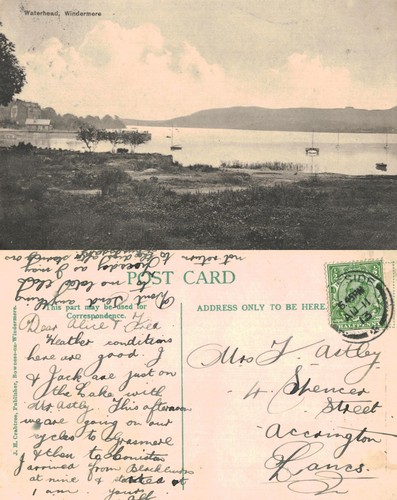 Waterhead, Windermere
not return
to the
Dont Send anything
POST CARD
This part may be used for
Correspondence.
ADDRESS ONLY TO BE HERE.
HALFPENNY
J. H. Crabtree, Publisher, Bowness-on-Windermere.
Dear Alice &
Weather conditions
here are good. J
& Jack are just on
the Lake with
Mr Astley. This afternoon
we are going on our
cycles to Grasmere
& then to Coniston
I arrived from Blackburn
at nine & started at
1 am. Your
Mrs F. Astley
4 Spencer
Street
Accrington
Lancs.